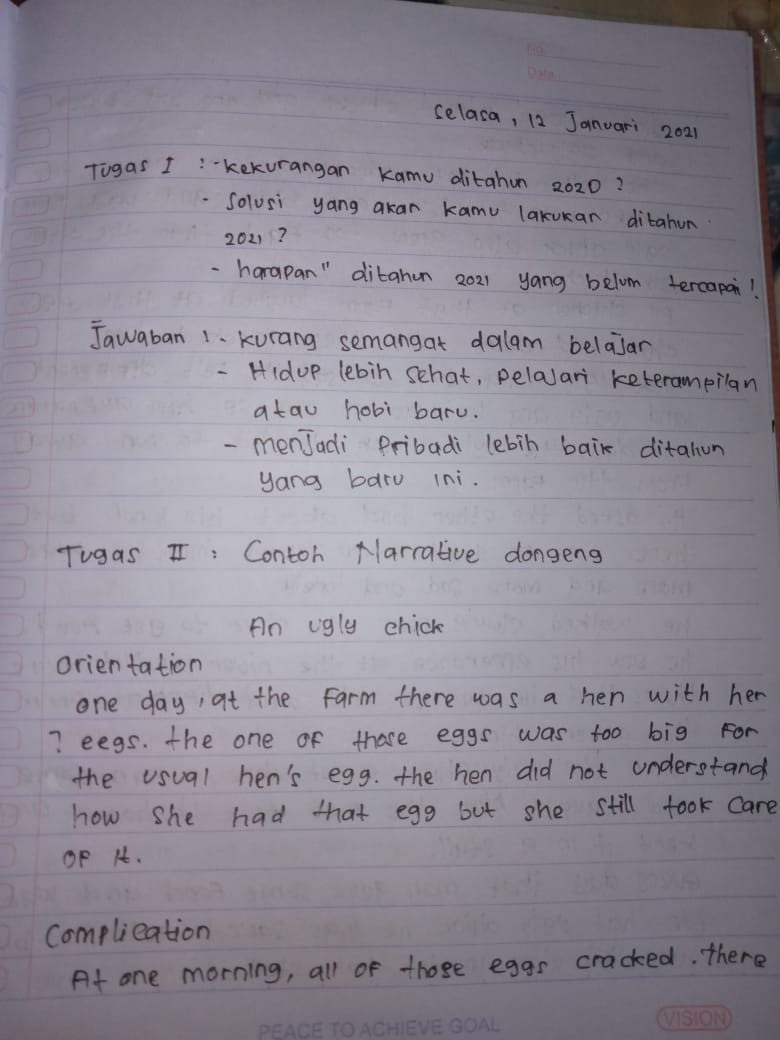 No.
Date
Selasa, 12 Januari 2021
Tugas I : - kekurangan kamu ditahun 2020 ?
- Solusi yang akan kamu lakukan ditahun
2021 ?
- harapan" ditahun 2021 yang belum tercapai !
Jawaban : - kurang semangat dalam belajar
- Hidup lebih sehat, pelajari keterampilan
atau hobi baru.
- menjadi pribadi lebih baik ditahun
yang baru ini.
Tugas II : Contoh Narrative dongeng
An ugly chick
Orientation
one day, at the Farm there was a hen with her
7 eegs. the one of those eggs was too big For
the usual hen's egg. the hen did not understand
how she had that egg but she still took care
OF it.
Complication
At one morning, all of those eggs cracked. there
PEACE TO ACHIEVE GOAL
VISION